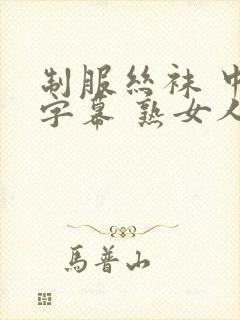 制服絲袜 中
字幕 熟女人
馬普山